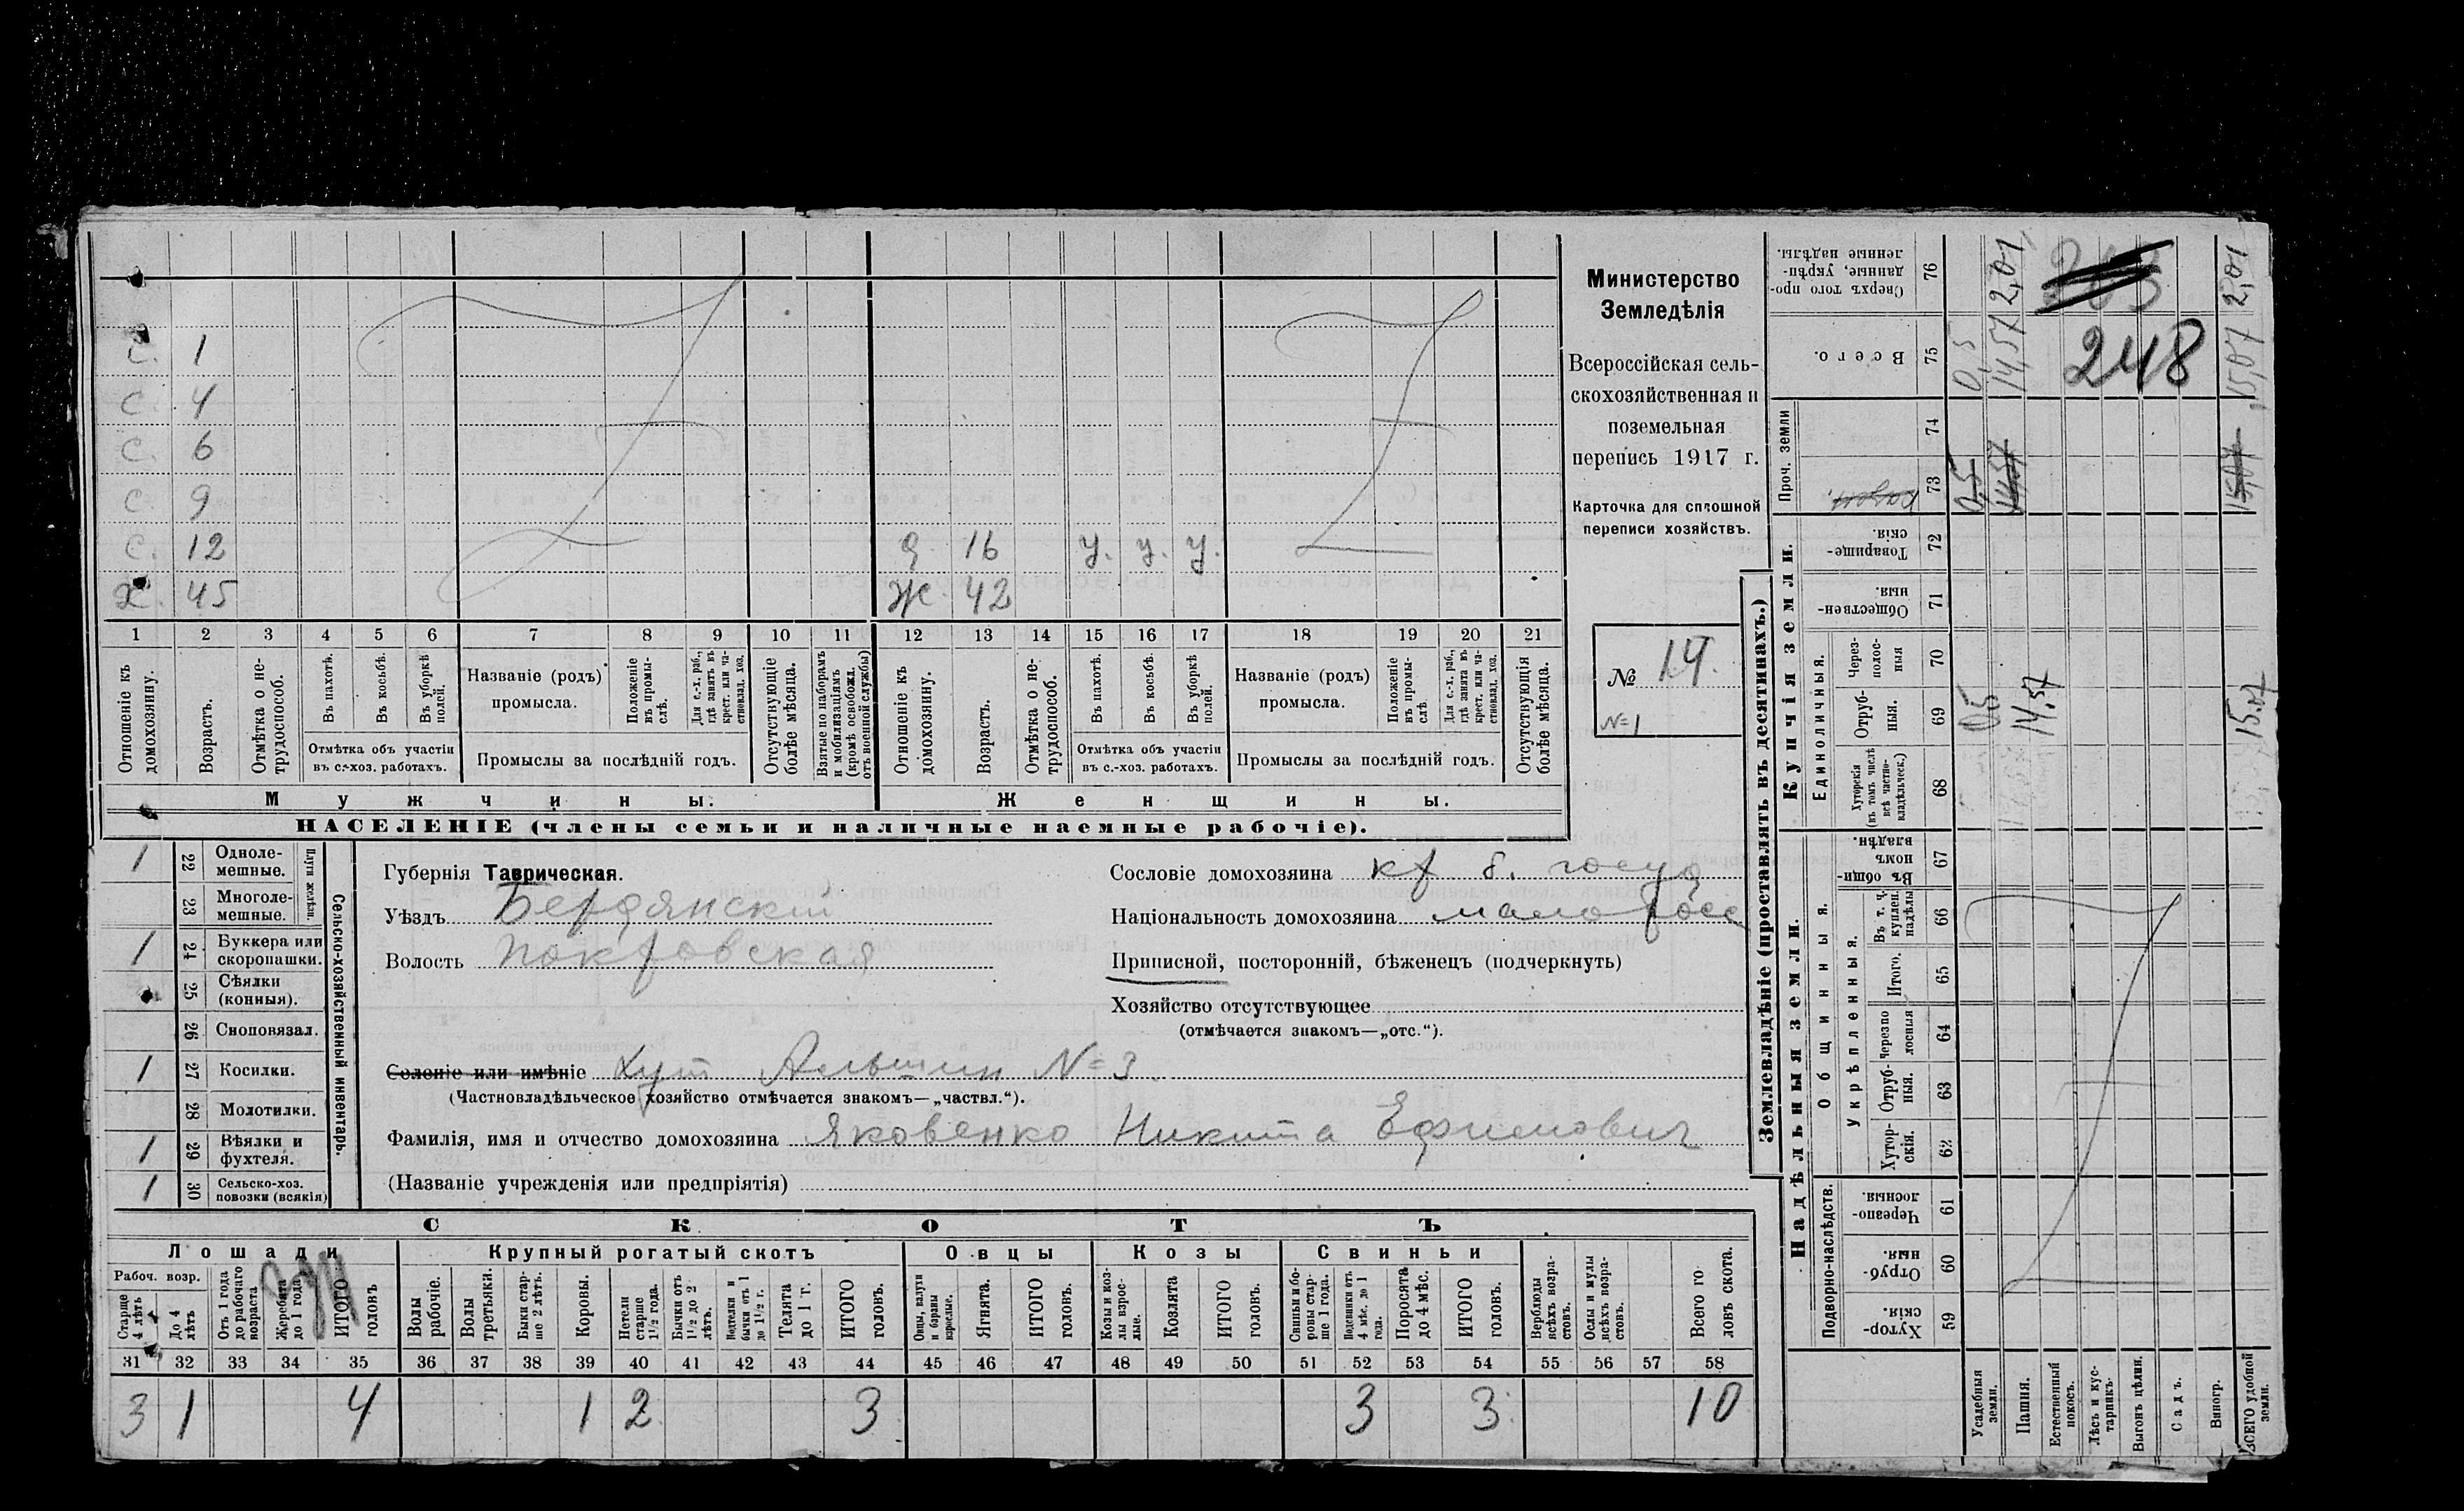 с. 1
с. 4
с. 6
с. 9
с. 12 д. 16 у. у. у.
х. 45 ж. 42
1 2 3 4 5 6 7 8 9 10 11 12 13 14 15 16 17 18 19 20 21
Отношеніе къ домохозяину.
Возрастъ.
Отмѣтка о нетрудоспособ.
Въ пахотѣ.
Въ косьбѣ.
Въ уборкѣ полей.
Отмѣтка объ участіи
въ с.-хоз. работахъ.
Названіе (родъ)
промысла.
Положеніе въ промыслѣ.
Для с.-х. раб., гдѣ занятъ въ крест. или частновлад. хоз.
Промыслы за послѣдній годъ.
Отсутствующіе болѣе мѣсяца.
Взятые по наборамъ и мобилизаціямъ (кромѣ освобожд. отъ военной службы)
Отношеніе къ домохозяину.
Возрастъ.
Отмѣтка о нетрудоспособ.
Въ пахотѣ.
Въ косьбѣ.
Въ уборкѣ полей.
Отмѣтка объ участіи
въ с.-хоз. работахъ.
Названіе (родъ)
промысла.
Положеніе въ промыслѣ.
Для с.-х. раб., гдѣ занята въ крест. или частновлад. хоз.
Промыслы за послѣдній годъ.
Отсутствующія болѣе мѣсяца.
Мужчины. Женщины.
НАСЕЛЕНІЕ (члены семьи и наличные наемные рабочіе).
Министерство
Земледѣлія
Всероссійская сель-
скохозяйственная и
поземельная
перепись 1917 г.
Карточка для сплошной
переписи хозяйствъ.
№ 14.
№1
1 22 Одноле-
мешные.
23 Многоле-
мешные.
Плуги желѣзн.
1 24 Буккера или
скоропашки.
25 Сѣялки
(конныя).
26 Сноповязал.
1 27 Косилки.
28 Молотилки.
1 29 Вѣялки и
фухтеля.
1 30 Сельско-хоз.
повозки (всякія)
Сельско-хозяйственный инвентарь.
Губернія Таврическая.
Уѣздъ Бердянскій
Волость Покровская
Сословіе домохозяина кр б. госуд
Національность домохозяина малоросс
Приписной, посторонній, бѣженецъ (подчеркнуть)
Хозяйство отсутствующее
(отмѣчается знакомъ—„отс.“).
Селеніе или имѣніе Хут Альшин №3.
(Частновладѣльческое хозяйство отмѣчается знакомъ—„частвл.“).
Фамилія, имя и отчество домохозяина Яковенко Никита Ефимович
(Названіе учрежденія или предпріятія)
СКОТЪ
Лошади Крупный рогатый скотъ Овцы Козы Свиньи
Рабоч. возр.
Старше 4 лѣтъ
До 4 лѣтъ
Отъ 1 года до рабочаго возраста
Жеребята до 1 года
ИТОГО головъ
Волы рабочіе.
Волы третьяки.
Быки старше 2 лѣтъ.
Коровы.
Нетели старше 1½ года.
Бычки отъ 1½ до 2 лѣтъ.
Нетелки и бычки отъ 1 до 1½ г.
Телята до 1 г.
ИТОГО головъ.
Овцы, валухи и бараны взрослые.
Ягнята.
ИТОГО головъ.
Козы и козлы взрослые.
Козлята
ИТОГО головъ.
Свиньи и боровы старше 1 года.
Подсвинки отъ 4 мѣс. до 1 года.
Поросята до 4 мѣс.
ИТОГО головъ.
Верблюды всѣхъ возрастовъ.
Ослы и мулы всѣхъ возрастовъ.
Всего головъ скота.
31 32 33 34 35 36 37 38 39 40 41 42 43 44 45 46 47 48 49 50 51 52 53 54 55 56 57 58
3 1 4 1 2 3 3 3 10
Землевладѣніе (проставлять въ десятинахъ.)
Купчія земли.
Надѣльныя земли.
Сверхъ того проданные, укрѣпленные надѣлы. 76 2,01 2,01
248
Всего. 75 0,5 14,57 15,07
Проч. земли
74
73 0,5 14,57 15,07
Товарищескія 72
Общественныя. 71
Единоличныя.
Черезполосныя 70
Отрубныя. 69 0,5 14.57 15.07
Хуторскія (въ томъ числѣ всѣ частновладѣльческ.) 68
Общинныя.
Въ общинномъ владѣн. 67
Укрѣпленныя.
Въ т. ч. куплен. надѣлы 66
Итого. 65
Черезполосныя 64
Отрубныя. 63
Хуторскія. 62
Подворно-наслѣдств.
Черезполосныя. 61
Отрубныя. 60
Хуторскія. 59
Усадебныя земли.
Пашня.
Естественный покосъ.
Лѣсъ и кустарникъ.
Выгонъ цѣлин.
Садъ.
Виногр.
ВСЕГО удобной земли.